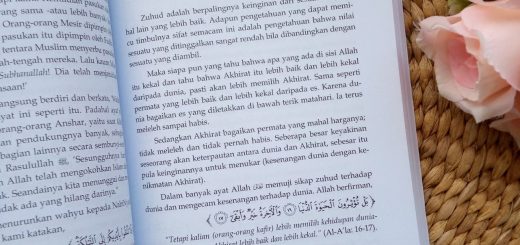 - Orang-orang Mesir dipimpin
sama -atau lebih banyak
pasukan itu dipimpin oleh
tentara Muslim menyerbu pasu
ah-tengah mereka. Lalu kaum
Subhanallah! Dia telah memenan
saan!"
angsung berdiri dan berkata,
yat ini seperti itu. Padahal ayat
orang-orang Anshar, yaitu saat
pendukungnya banyak, sebag
bagian lainnya secara sembuny
i Rasulullah ﷺ, "Sesungguhnya
Allah telah mengokohkan Islam
a. Seandainya kita menunggui dan
ada yang hilang darinya."
menurunkan wahyu kepada Nabi
kami katakan,
Zuhud adalah berpalingnya keinginan dari se
bal lain yang lebih baik. Adapun pengetahuan yang dapat memi-
cu timbulnya sifat semacam ini adalah pengetahuan bahwa nilai
sesuatu yang ditinggalkan sangat rendah bila dibandingkan dengan
sesuatu yang diambil.
Maka siapa pun yang tahu bahwa apa yang ada di sisi Allah
itu kekal dan tahu bahwa Akhirat itu lebih baik dan lebih kekal
daripada dunia, pasti akan lebih memilih Akhirat. Sama seperti
permata yang lebih baik dan lebih kekal daripada es. Karena du-
nia bagaikan es yang diletakkan di bawah terik matahari. Ia terus
meleleh sampai habis.
Sedangkan Akhirat bagaikan permata yang mahal harganya;
tidak meleleh dan tidak pernah habis. Seberapa besar keyakinan
seseorang akan keterpautan antara dunia dan Akhirat, sebesar itu
pula keinginannya untuk menukar (kesenangan dunia dengan ke-
nikmatan Akhirat).
Dalam banyak ayat Allah memuji sikap zuhud terhadap
dunia dan mengecam kesenangan terhadap dunia. Allah berfirman,
بَلْ تُؤْثِرُونَ الْحَيَوٰةَ الدُّنْيَا ﴿١٦﴾ وَالْآخِرَةُ خَيْرٌ وَأَبْقَىٰ ﴿١٧﴾
"Tetapi kalian (orang-orang kafir) lebih memilih kehidupan dunia-
irat lebih baik dan lebih kekal." (Al-A'la: 16-17).